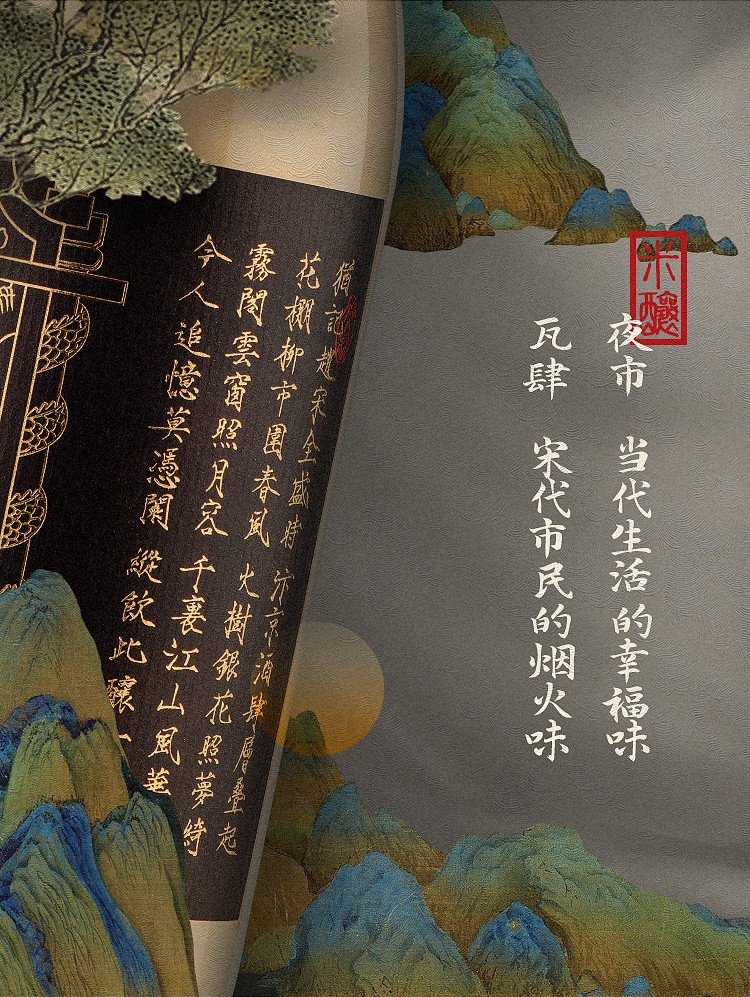 米釀
夜市 当代生活的幸福味
瓦肆 宋代市民的烟火味
猶記趙宋全盛時 汴京酒肆層疊起
花棚柳市圍春風 火樹銀花照夢綺
霧閣雲窗照月容 千裏江山風華
令人追憶莫憑闌 縱飲此釀一